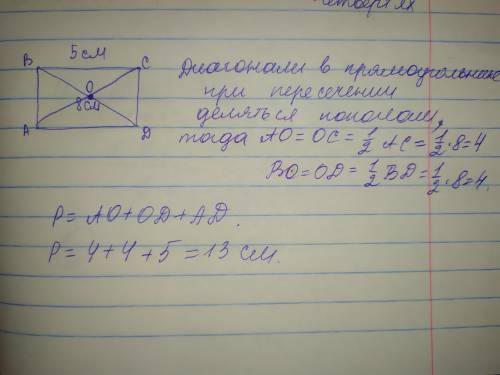 5 см
B
C
O
8 см
A
D
Диагонали в прямоугольнике
при пересечении
деляться пополам,
тогда AO = OC = 1/2 AC = 1/2 · 8 = 4
BO = OD = 1/2 BD = 1/2 · 8 = 4.
P = AO + OD + AD.
P = 4 + 4 + 5 = 13 см.